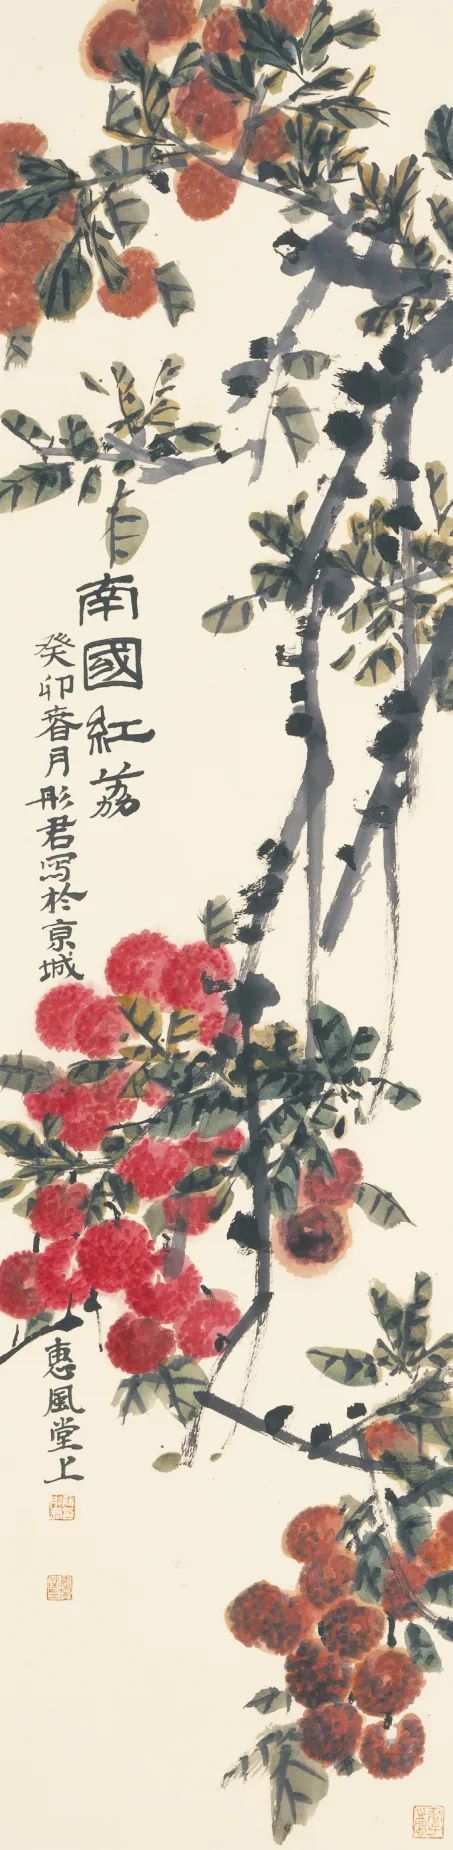 南國紅荔
癸卯春月彤君寫於京城
惠風堂上